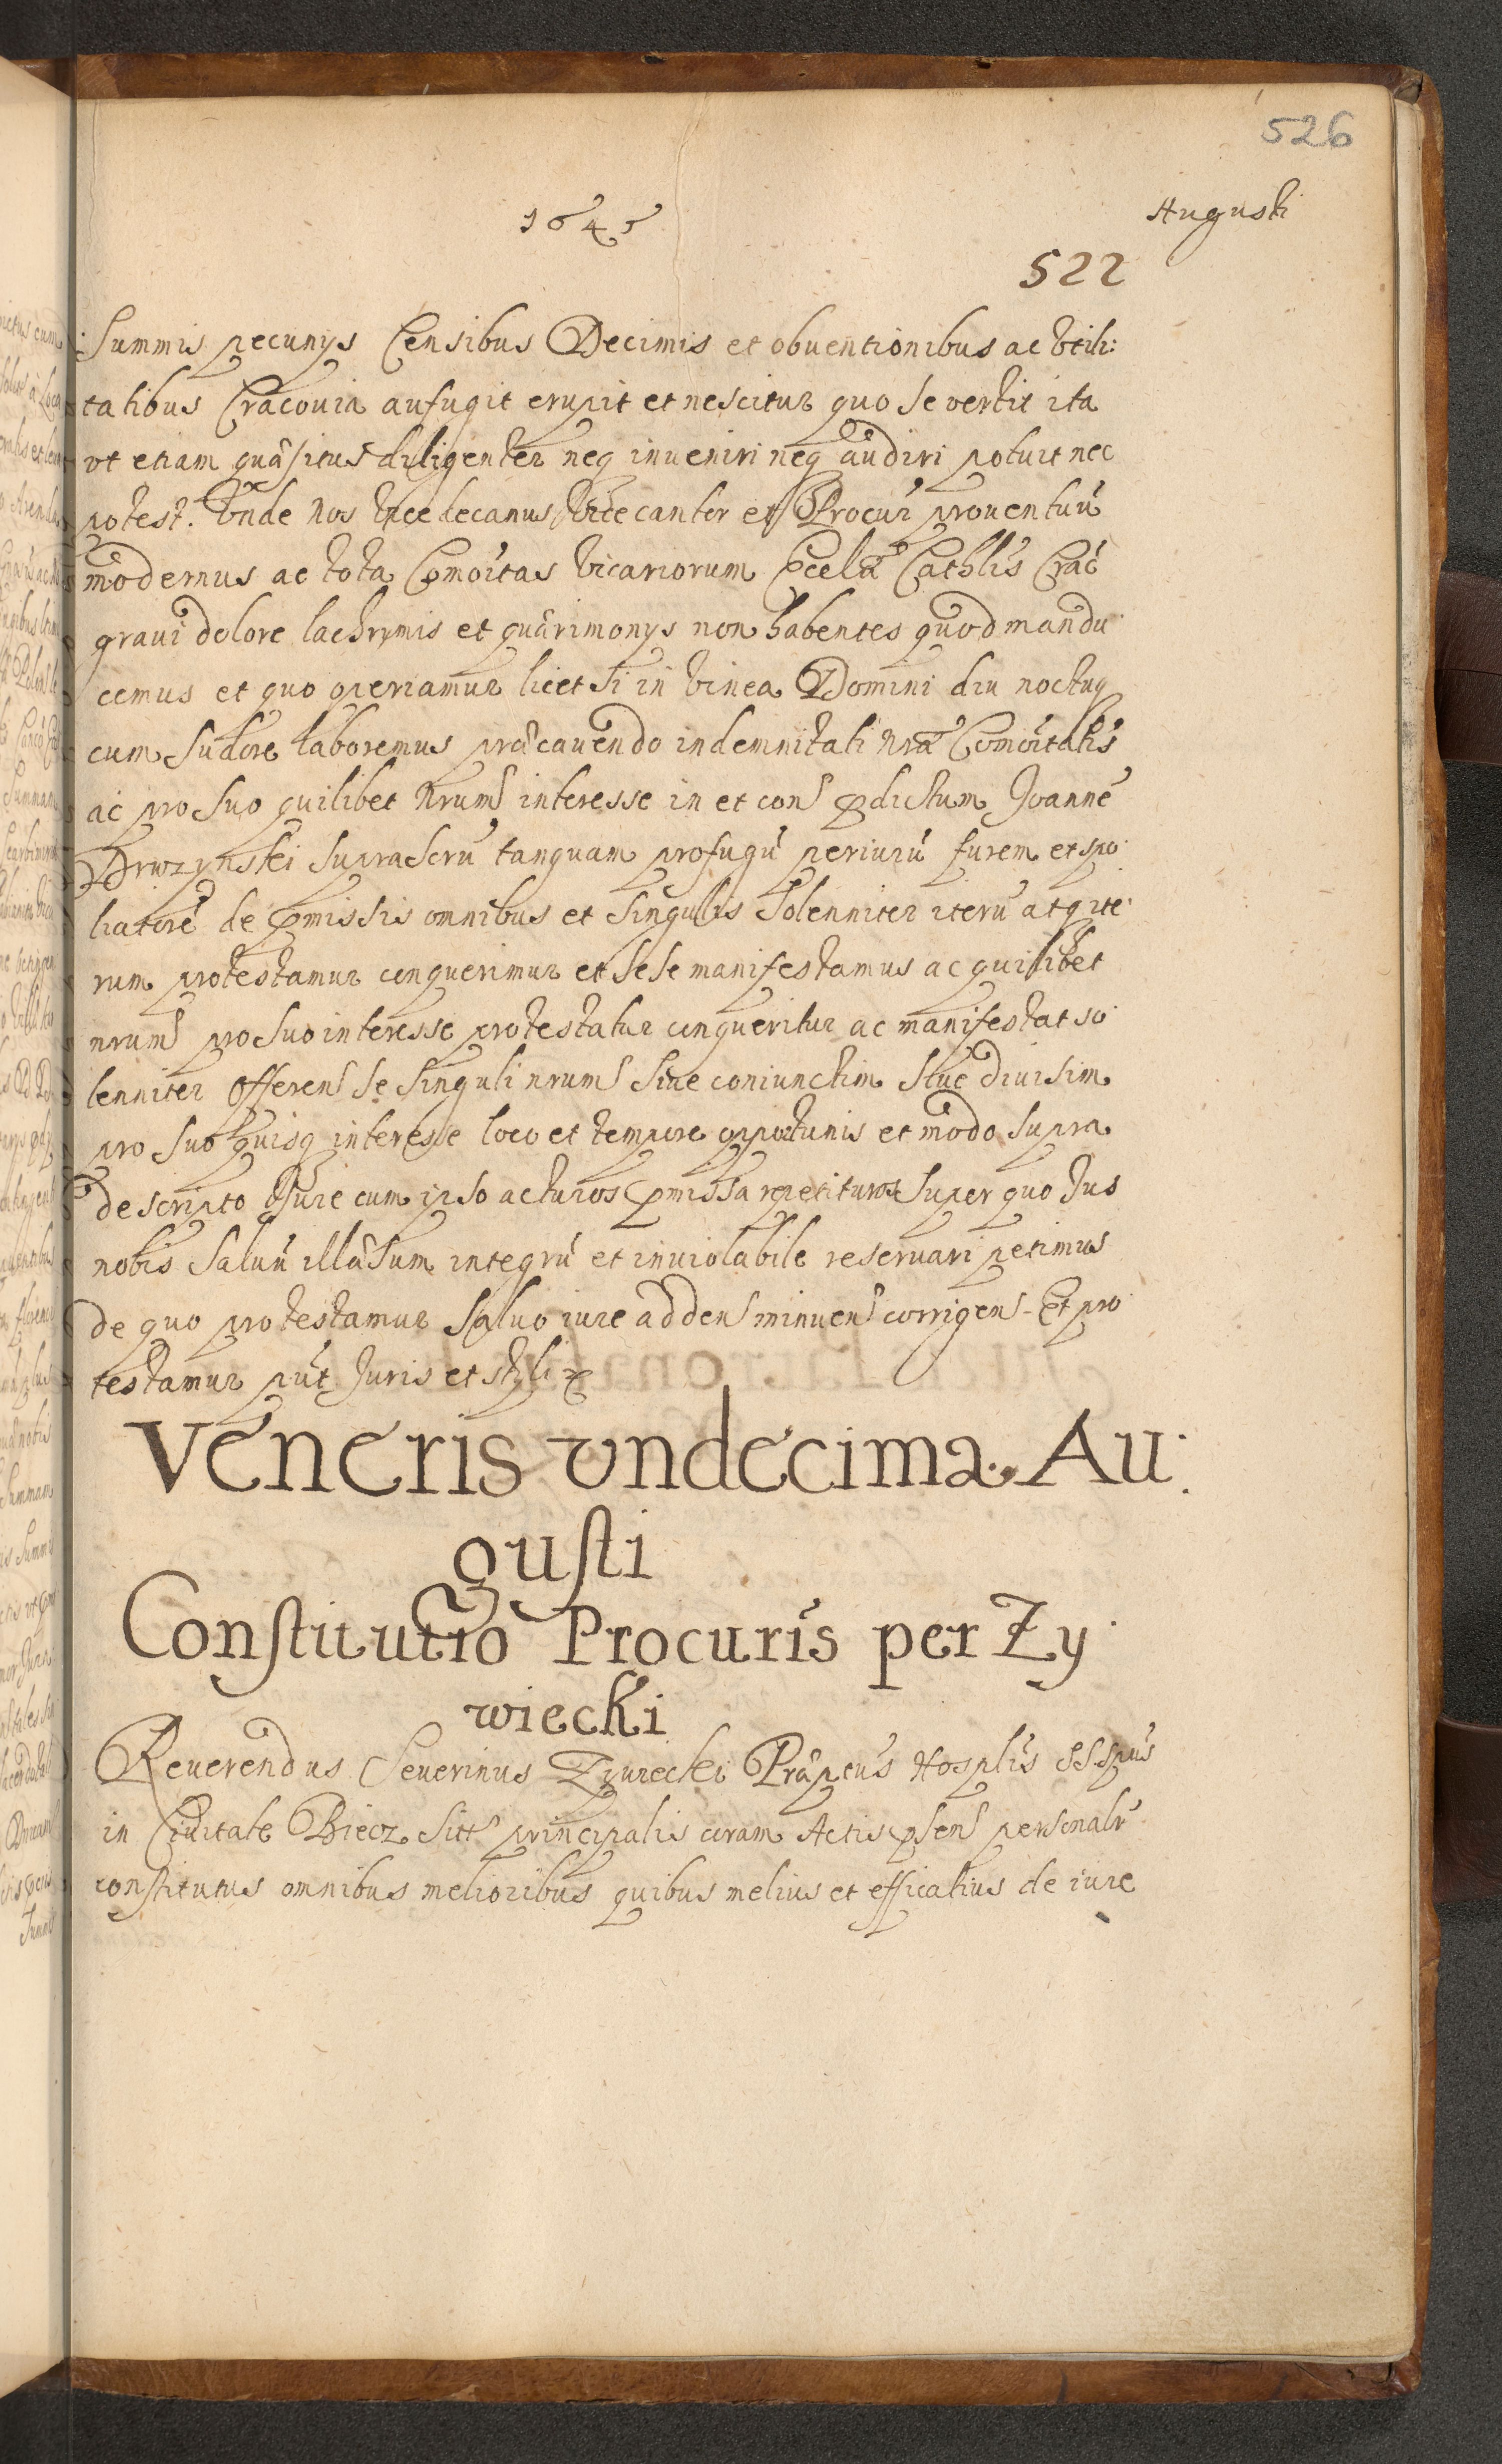 526
1645 Augusti
522
Summis pecunÿs Censibus Decimis et obuentionibus ac Vtili:
tatibus Cracouia aufugit erupit et nescitur quo se vertit ita
vt etiam quæsitus diligenter neq inueniri neq audiri potuit nec
potest. Vnde Nos Vicedecanus Vicecantor et Procur prouentuũ
modernus ac tota Comõitas Vicariorum Eccłæ Cathłis Crac̃
graui dolore lachrymis et quærimonÿs non habentes quod mandu
cemus et quo operiamur licet si in Vinea Domini diu noctuq
cum sudore laboremus præcauendo indemnitati nræ Comõitatis
ac pro suo quilibet nrum interesse in et con pdictum Joannẽ
Drwzynski suprascrũ tanquam profugũ periurũ furem et spo
liatorẽ de pmissis omnibus et singulis solenniter iterũ atq ite
rum protestamur conquerimur et sese manifestamus ac quilibet
nrum pro suo interesse protestatur conqueritur ac manifestat so
lenniter offeren se singuli nrum siue coniunctim siue diuisim
pro suo quisq interesse loco et tempore opportunis et modo supra
descripto Iure cum ipso acturos pmissa repetituros super quo Jus
nobis saluũ illæsum integrũ et inuiolabile reseruari petimus
de quo protestamur saluo iure adden minuen corrigen - Et pro
testamur put Juris et styli
Veneris vndecima Au:
gusti
Constitutio Procuris per Zy
wiecki
Reuerendus Seuerinus Zywiecki Præptus Hosplis SSspus
in Ciuitate Biecz sitt principalis coram Actis psen personalr
constitutus omnibus melioribus quibus melius et efficatius de iure